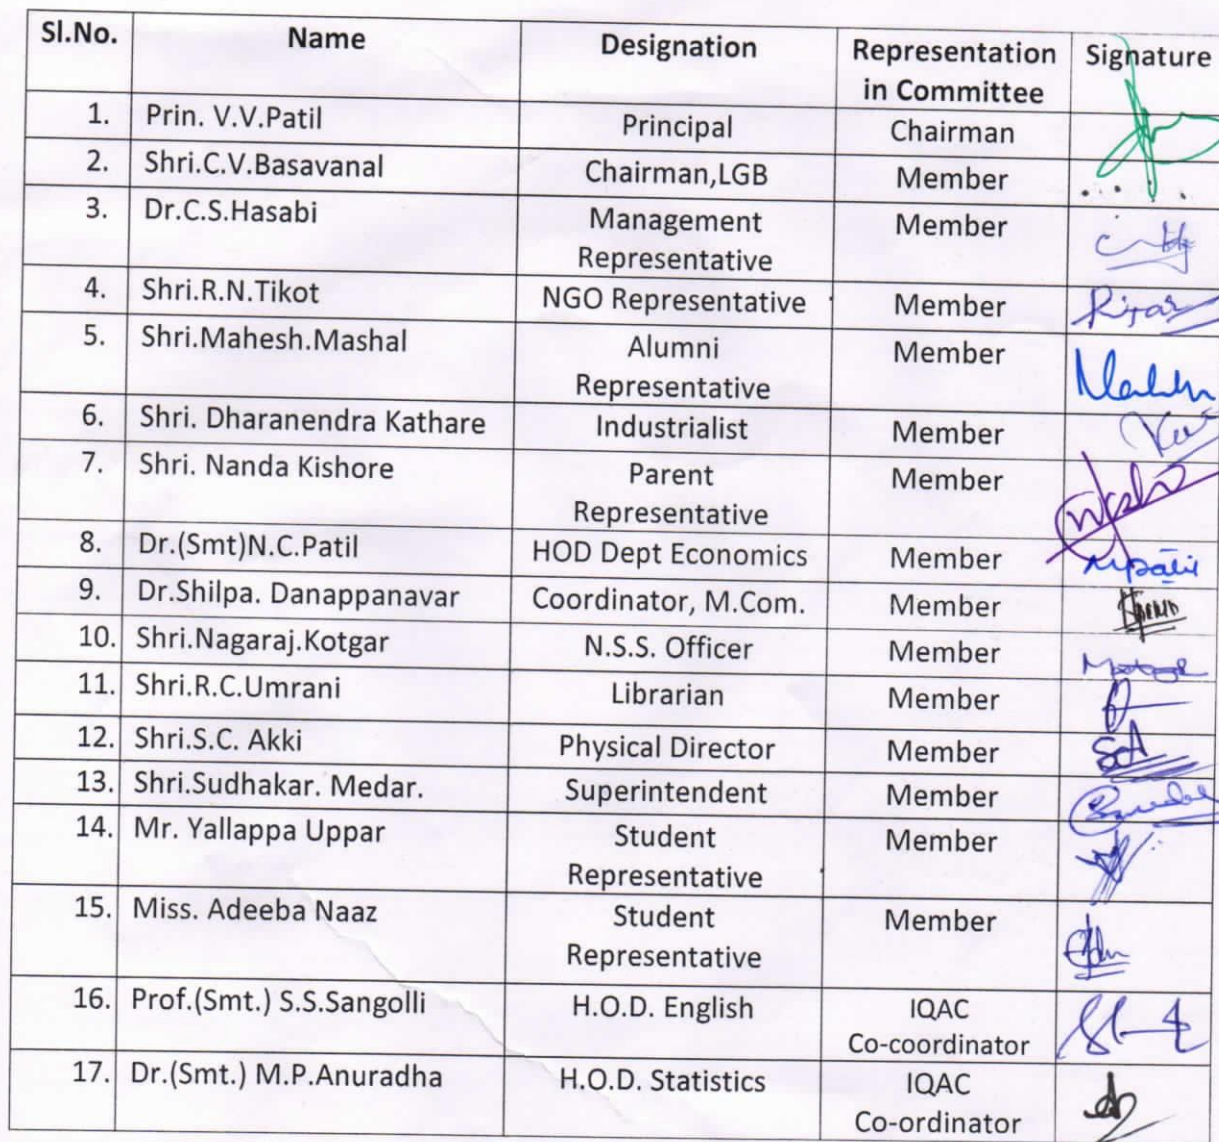 Sl.No. Name Designation Representation Signature
in Committee
1. Prin. V.V.Patil Principal Chairman
2. Shri.C.V.Basavanal Chairman,LGB Member
3. Dr.C.S.Hasabi Management Member
Representative
4. Shri.R.N.Tikot NGO Representative Member
5. Shri.Mahesh.Mashal Alumni Member
Representative
6. Shri. Dharanendra Kathare Industrialist Member
7. Shri. Nanda Kishore Parent Member
Representative
8. Dr.(Smt)N.C.Patil HOD Dept Economics Member
9. Dr.Shilpa. Danappanavar Coordinator, M.Com. Member
10. Shri.Nagaraj.Kotgar N.S.S. Officer Member
11. Shri.R.C.Umrani Librarian Member
12. Shri.S.C. Akki Physical Director Member
13. Shri.Sudhakar. Medar. Superintendent Member
14. Mr. Yallappa Uppar Student Member
Representative
15. Miss. Adeeba Naaz Student Member
Representative
16. Prof.(Smt.) S.S.Sangolli H.O.D. English IQAC
Co-coordinator
17. Dr.(Smt.) M.P.Anuradha H.O.D. Statistics IQAC
Co-ordinator